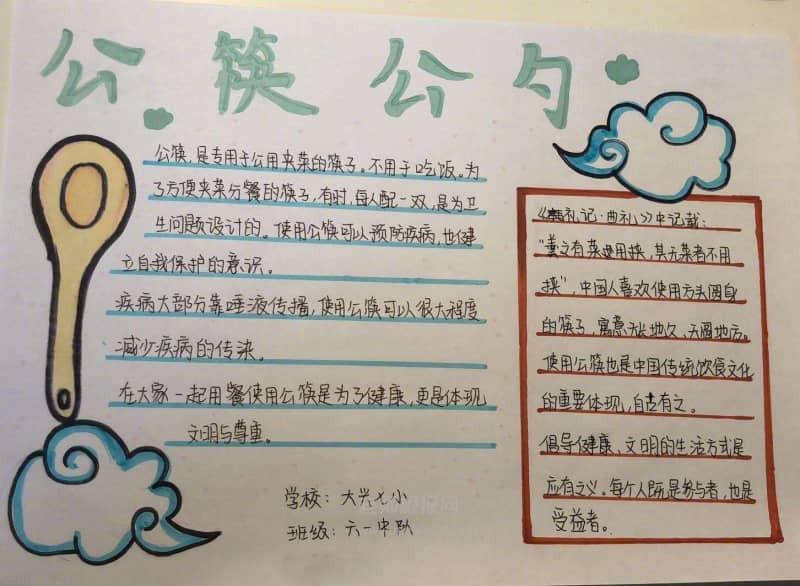 公筷公勺
公筷，是专用于公用夹菜的筷子。不用于吃饭。为
了方便夹菜分餐的筷子，有时，每人配一双，是为卫
生问题设计的。使用公筷可以预防疾病，也健
立自我保护的意识。
疾病大部分靠唾液传播，使用公筷可以很大程度
减少疾病的传染。
在大家一起用餐使用公筷是为了健康，更是体现
文明与尊重。
学校：大兴七小
班级：六一中队
《礼记·曲礼》中记载：
“羹之有菜用挟，其无菜者不用
挟”，中国人喜欢使用方头圆身
的筷子，寓意天长地久、天圆地方。
使用公筷也是中国传统饮食文化
的重要体现，自古有之。
倡导健康、文明的生活方式是
应有之义。每个人既是参与者，也是
受益者。